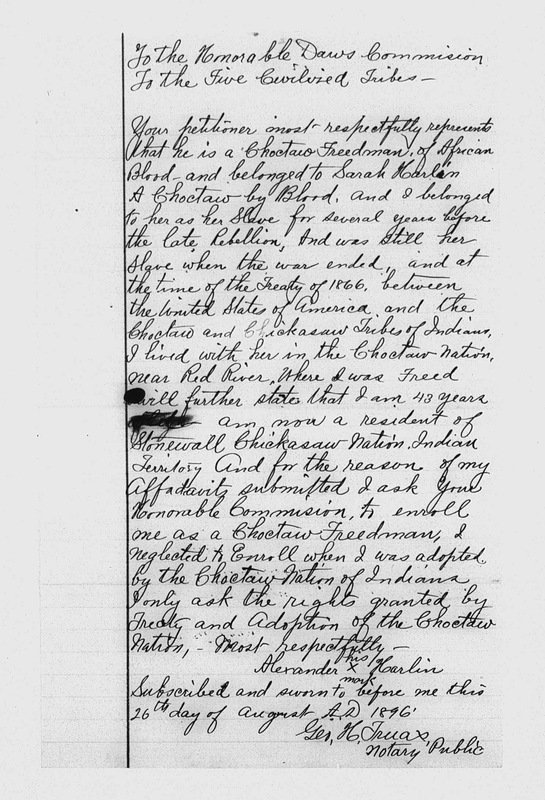 To the Honorable Daws Commision
To the Five Civilized Tribes —
Your petitioner most respectfully represents
that he is a Choctaw Freedman, of African
Blood - and belonged to Sarah Harlin
A Choctaw by Blood, and I belonged
to her as her Slave for several years before
the late rebellion, And was still her
Slave when the war ended, and at
the time of the Treaty of 1866, between
the United States of America and the
Choctaw and Chickasaw Tribes of Indians,
I lived with her in the Choctaw Nation,
near Red River, Where I was Freed
will further state that I am 43 years
am now a resident of
Stonewall Chickasaw Nation, Indian
Territory And for the reason of my
Affadavits submitted I ask Your
Honorable Commision, to enroll
me as a Choctaw Freedman, I
neglected to Enroll when I was adopted
by the Choctaw Nation of Indians
I only ask the rights granted by
Treaty and Adoption of the Choctaw
Nation, - Most respectfully -
his
Alexander x Harlin
mark
Subscribed and sworn to before me this
26th day of August A.D 1896
Geo. H. Truax
Notary Public